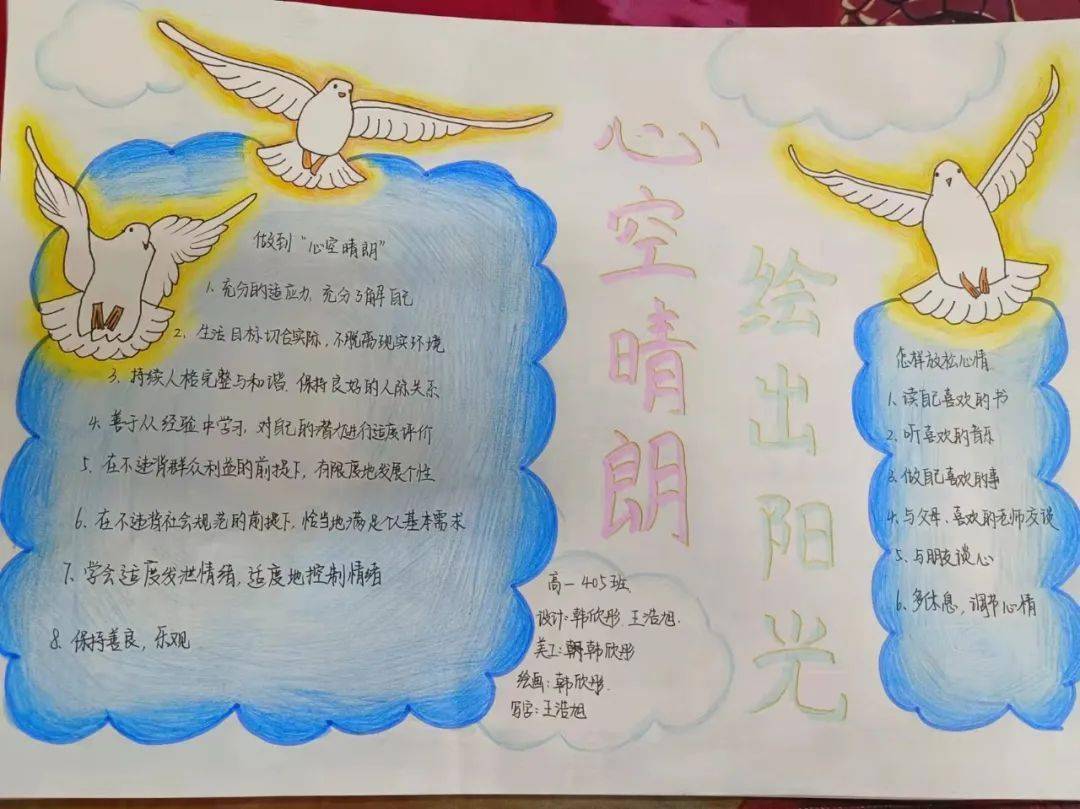 做到“心空晴朗”
1. 充分的适应力，充分了解自己
2. 生活目标切合实际，不脱离现实环境
3. 持续人格完整与和谐，保持良好的人际关系
4. 善于从经验中学习，对自己的潜力进行适度评价
5. 在不违背群众利益的前提下，有限度地发展个性
6. 在不违背社会规范的前提下，恰当地满足个人基本需求
7. 学会适度发泄情绪，适度地控制情绪
8. 保持善良，乐观
心空晴朗
绘出阳光
高一405班
设计：韩欣彤 王浩旭
美工：韩欣彤
绘画：韩欣彤
写字：王浩旭
怎样放松心情
1. 读自己喜欢的书
2. 听喜欢的音乐
3. 做自己喜欢的事
4. 与父母、喜欢的老师交谈
5. 与朋友谈心
6. 多休息，调节心情